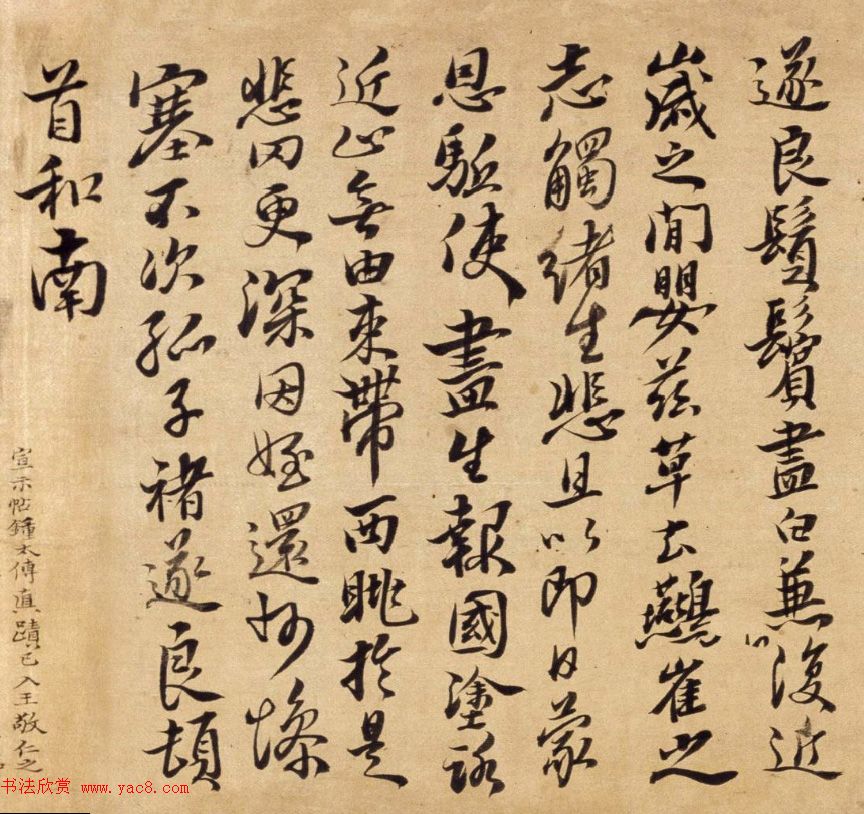 遂良鬚鬢盡白兼復近
歲之間嬰茲草土燕雀之
志觸緒生悲且以即日蒙
恩驅使盡生報國塗路
近止無由束帶西眺於是
悲罔更深因姪還州慘
塞不次孤子褚遂良頓
首和南
宣示帖鍾太傅真蹟已入王敬仁之
书法欣赏 www.yac8.com